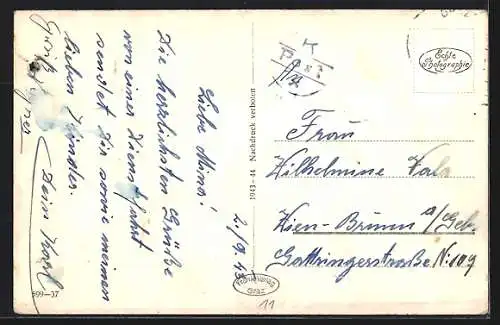 2./9.43
Liebe Minna!
Die herzlichsten Grüße
von einer Dienstfahrt
sendet Dir sowie meinen
lieben Kindler.
Dein Karl
1943–44 Nachdruck verboten
599–37
Echte
Photographie
Frau
Wilhelmine
Wien-Brunn a/Geb.
Gattringerstraße Nr. 109
Graz
11